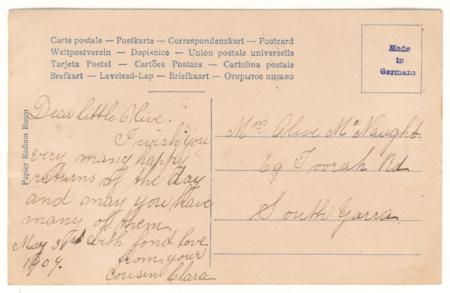 Carte postale — Postkarte — Correspondenzkart — Postcard
Weltpostverein — Dopisnice — Union postale universelle
Tarjeta Postal — Cartões Postaes — Cartolina postala
Brefkart — Levelező-Lap — Briefkaart — Открытое письмо
Made
in
Germany
Papier Radium Bromo
Dear little Olive.
I wish you
very many happy
returns of the day
and may you have
many of them
May 3rd with fond love
1907. from your
cousin Clara
Miss Olive McNaught
69 Toorah Rd
South Yarra